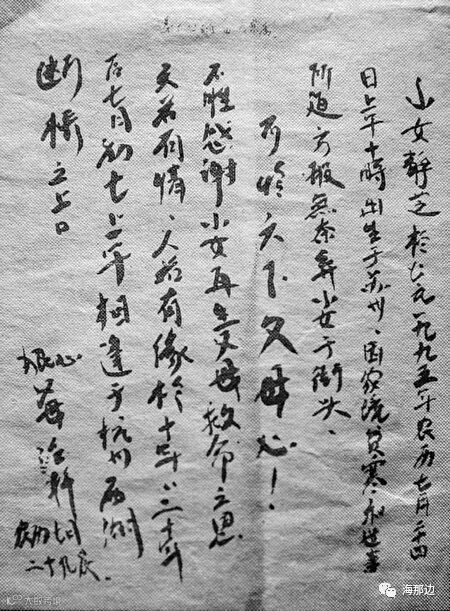 小女靜芝於公元一九九五年农历七月二十四
日上午十時出生于苏州、因家境貧寒和世事
所迫万般無奈弃小女于街头、
可怜天下父母心！
不胜感谢小女再生父母救命之恩
天若有情、人若有缘於十年、二十年
后七月初七上午相逢于杭州西湖
断桥之上
狠心
农历七月
二十九
海那边